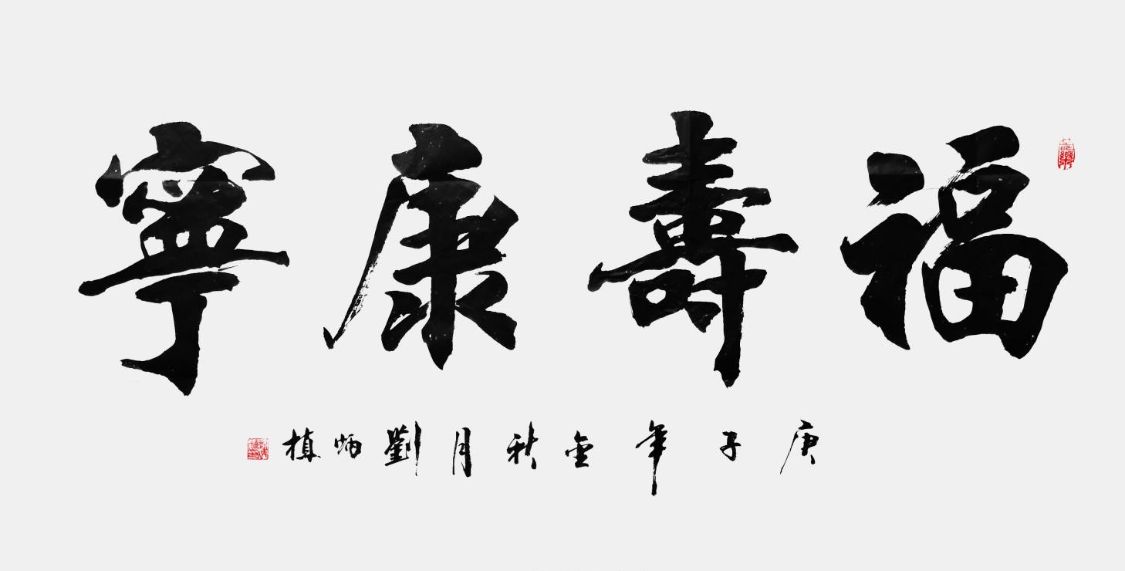 福壽康寧
庚子年金秋月劉炳植